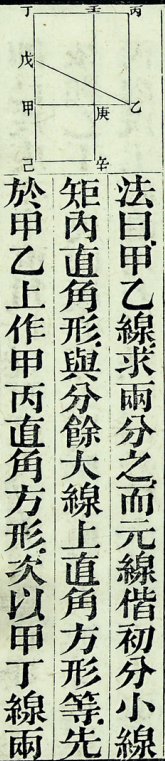 丁 壬 丙
戊
甲 庚 乙
己 辛
法曰甲乙線求兩分之而元線偕初分小線
矩內直角形與分餘大線上直角方形等先
於甲乙上作甲丙直角方形次以甲丁線兩